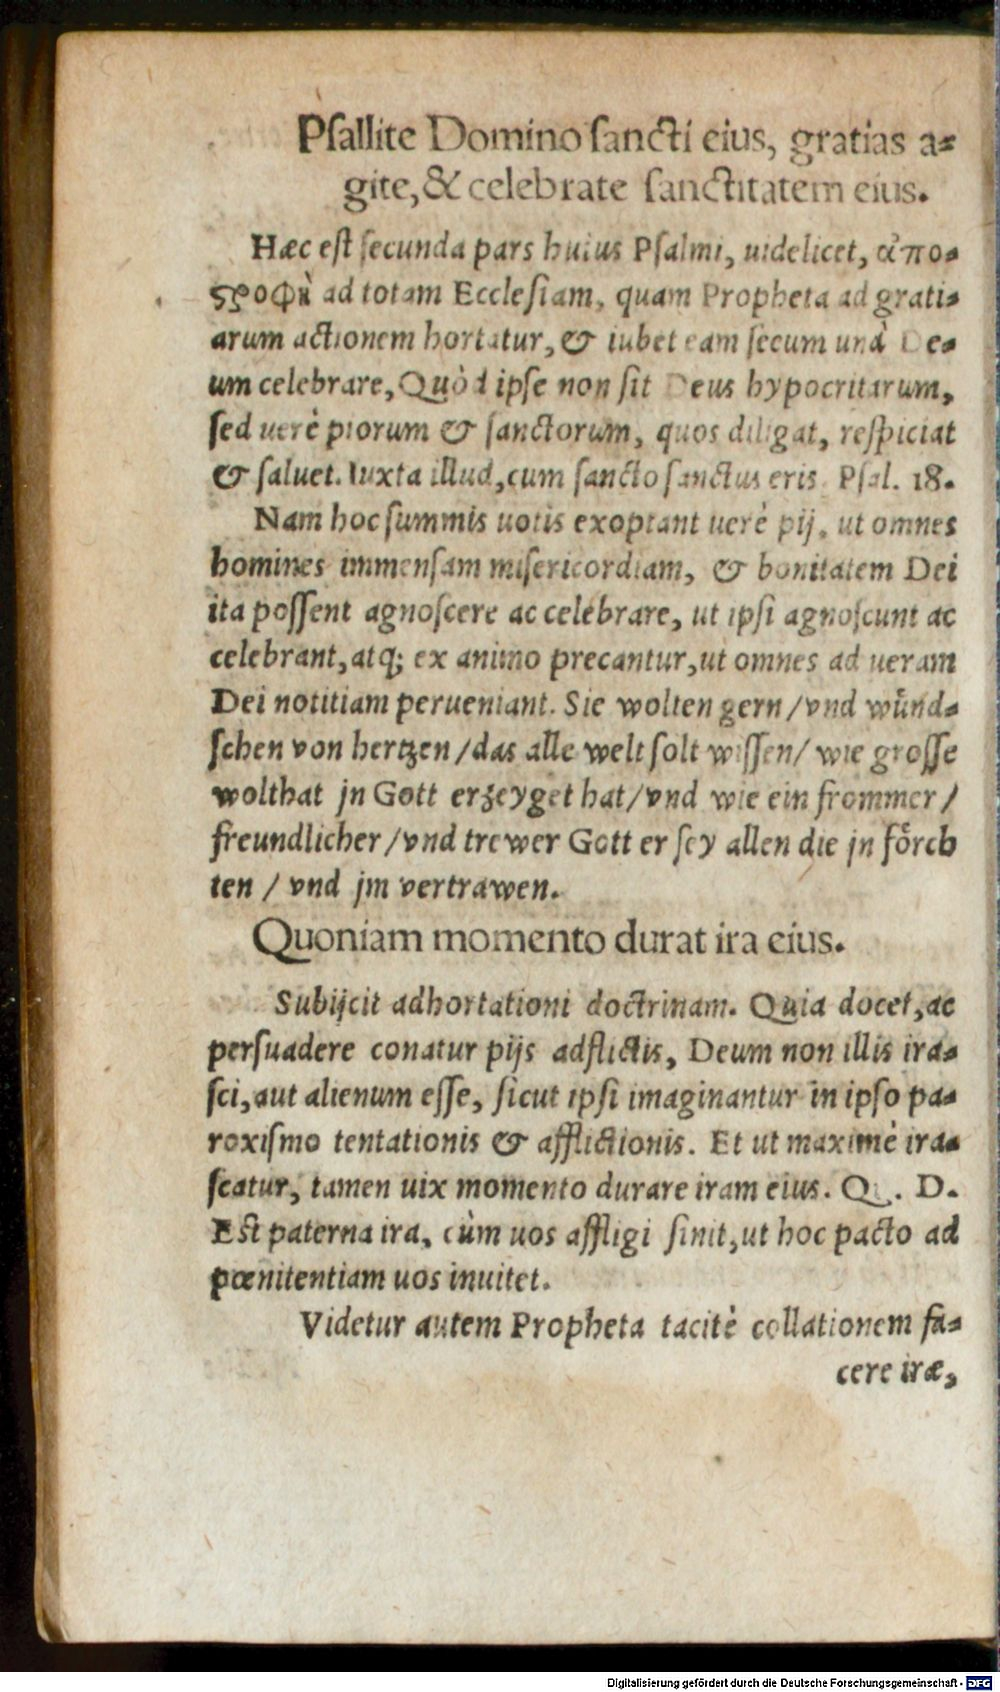 Psallite Domino sancti eius, gratias a⸗
gite, & celebrate sanctitatem eius.
Hæc est secunda pars huius Psalmi, uidelicet, ἀπο⸗
ςροφὴ ad totam Ecclesiam, quam Propheta ad grati⸗
arum actionem hortatur, & iubet eam secum unà De⸗
um celebrare, Quòd ipse non sit Deus hypocritarum,
sed uerè piorum & sanctorum, quos diligat, respiciat
& saluet. Iuxta illud, cum sancto sanctus eris. Psal. 18.
Nam hoc summis uotis exoptant uerè pij, ut omnes
homines immensam misericordiam, & bonitatem Dei
ita possent agnoscere ac celebrare, ut ipsi agnoscunt ac
celebrant, atq; ex animo precantur, ut omnes ad ueram
Dei notitiam perueniant. Sie wolten gern / vnd wuͤnd⸗
schen von hertzen / das alle welt solt wissen / wie grosse
wolthat jn Gott erzeyget hat / vnd wie ein frommer /
freundlicher / vnd trewer Gott er sey allen die jn foͤrch
ten / vnd jm vertrawen.
Quoniam momento durat ira eius.
Subijcit adhortationi doctrinam. Quia docet, ac
persuadere conatur pijs adflictis, Deum non illis ira⸗
sci, aut alienum esse, sicut ipsi imaginantur in ipso pa⸗
roxismo tentationis & afflictionis. Et ut maximè ira⸗
scatur, tamen uix momento durare iram eius. Q. D.
Est paterna ira, cùm uos affligi sinit, ut hoc pacto ad
pœnitentiam uos inuitet.
Videtur autem Propheta tacitè collationem fa⸗
cere iræ,
Digitalisierung gefördert durch die Deutsche Forschungsgemeinschaft - DFG